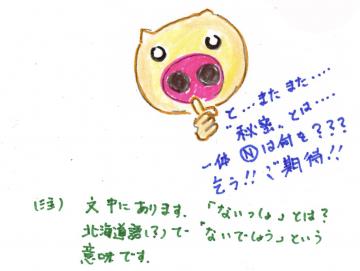 と…また また‥‥
"秘密"とは‥‥
一体 Ⓝは何を???
乞う!!ご期待!!
(注) 文中にあります.「ないっしょ」とは?
北海道語(?)で「ないでしょう」という
意味です.